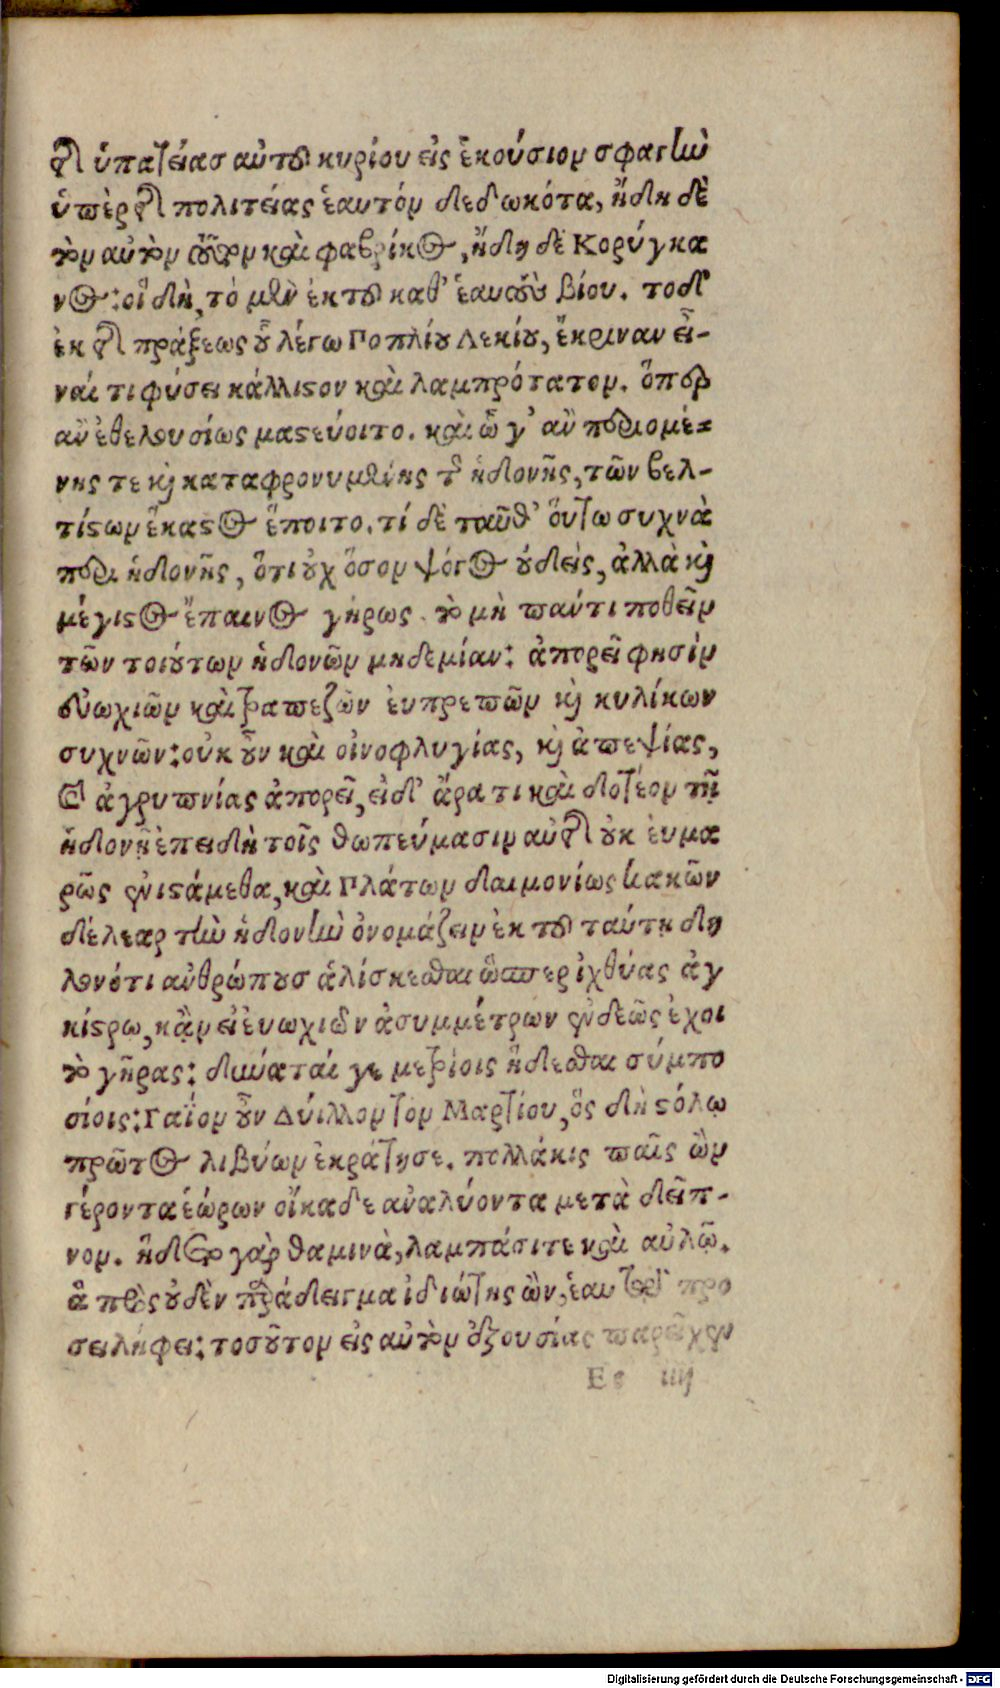 τῆς ὑπατείας αὐτοῦ κυρίου εἰς ἑκούσιον σφαγὴν
ὑπὲρ τῆς πολιτείας ἑαυτόν δεδωκότα, ἤδη δὲ
τὸν αὐτὸν τοῦτον καὶ φαβρίκιος, ἤδη δὲ Κορύγκα
νιος: οἳ δὴ, τὸ μὲν ἐκ τοῦ καθ' ἑαυτοὺς βίου. τὸ δ'
ἐκ τῆς πράξεως οὗ λέγω Ποπλίου Δεκίου, ἔκριναν εἶ-
ναί τι φύσει κάλλιστον καὶ λαμπρότατον. ὅπερ
ἂν ἐθελουσίως μαστεύοιτο. καὶ ᾧ γ' ἂν περιομέ=
νης τε καὶ καταφρονυμένης τῆς ἡδονῆς, τῶν βελ-
τίστων ἕκαστος ἕποιτο. τί δὲ ταῦθ' οὕτω συχνὰ
περὶ ἡδονῆς, ὅτι οὐχ ὅσον ψόγος οὐδεὶς, ἀλλὰ καὶ
μέγιστος ἔπαινος γήρως. τὸ μὴ πάντι ποθεῖν
τῶν τοιούτων ἡδονῶν μηδεμίαν: ἀπορεῖ φησίν
εὐωχιῶν καὶ τραπεζῶν ἐυπρεπῶν καὶ κυλίκων
συχνῶν: οὐκ οὖν καὶ οἰνοφλυγίας, καὶ ἀπεψίας,
καὶ ἀγρυπνίας ἀπορεῖ, εἰ δ' ἄρα τι καὶ δοτέον τῇ
ἡδονῇ ἐπειδὴ τοῖς θωπεύμασιν αὐτῆς οὐκ ἐυμα
ρῶς ἐνιστάμεθα, καὶ Πλάτων δαιμονίως κακῶν
δέλεαρ τὴν ἡδονὴν ὀνομάζειν ἐκ τοῦ ταύτῃ δη
λονότι ἀνθρώπους ἁλίσκεσθαι ὥσπερ ἰχθύας ἀγ
κίστρω, κἂν εἰ ἐυωχιῶν ἀσυμμέτρων ἐνδεῶς ἔχοι
τὸ γῆρας: δύναταί γε μετρίοις ἥδεσθαι συμπο
σίοις: Γαΐον οὖν Δύιλλον τὸν Μαρτίου, ὃς δὴ στόλῳ
πρῶτος λιβύων ἐκράτησε. πολλάκις παῖς ὢν
γέροντα ἑώρων οἴκαδε ἀναλύοντα μετὰ δεῖπ-
νον. ἥδετο γὰρ θαμινὰ, λαμπάσι τε καὶ αὐλῷ.
ἃ πρὸς οὐδὲν παράδειγμα ἰδιώτης ὢν, ἑαυτῷ προ
σειλήφει: τοσοῦτον εἰς αὐτὸν ἐξουσίας παρεῖχεν
Ee iiij
Digitalisierung gefördert durch die Deutsche Forschungsgemeinschaft - DFG